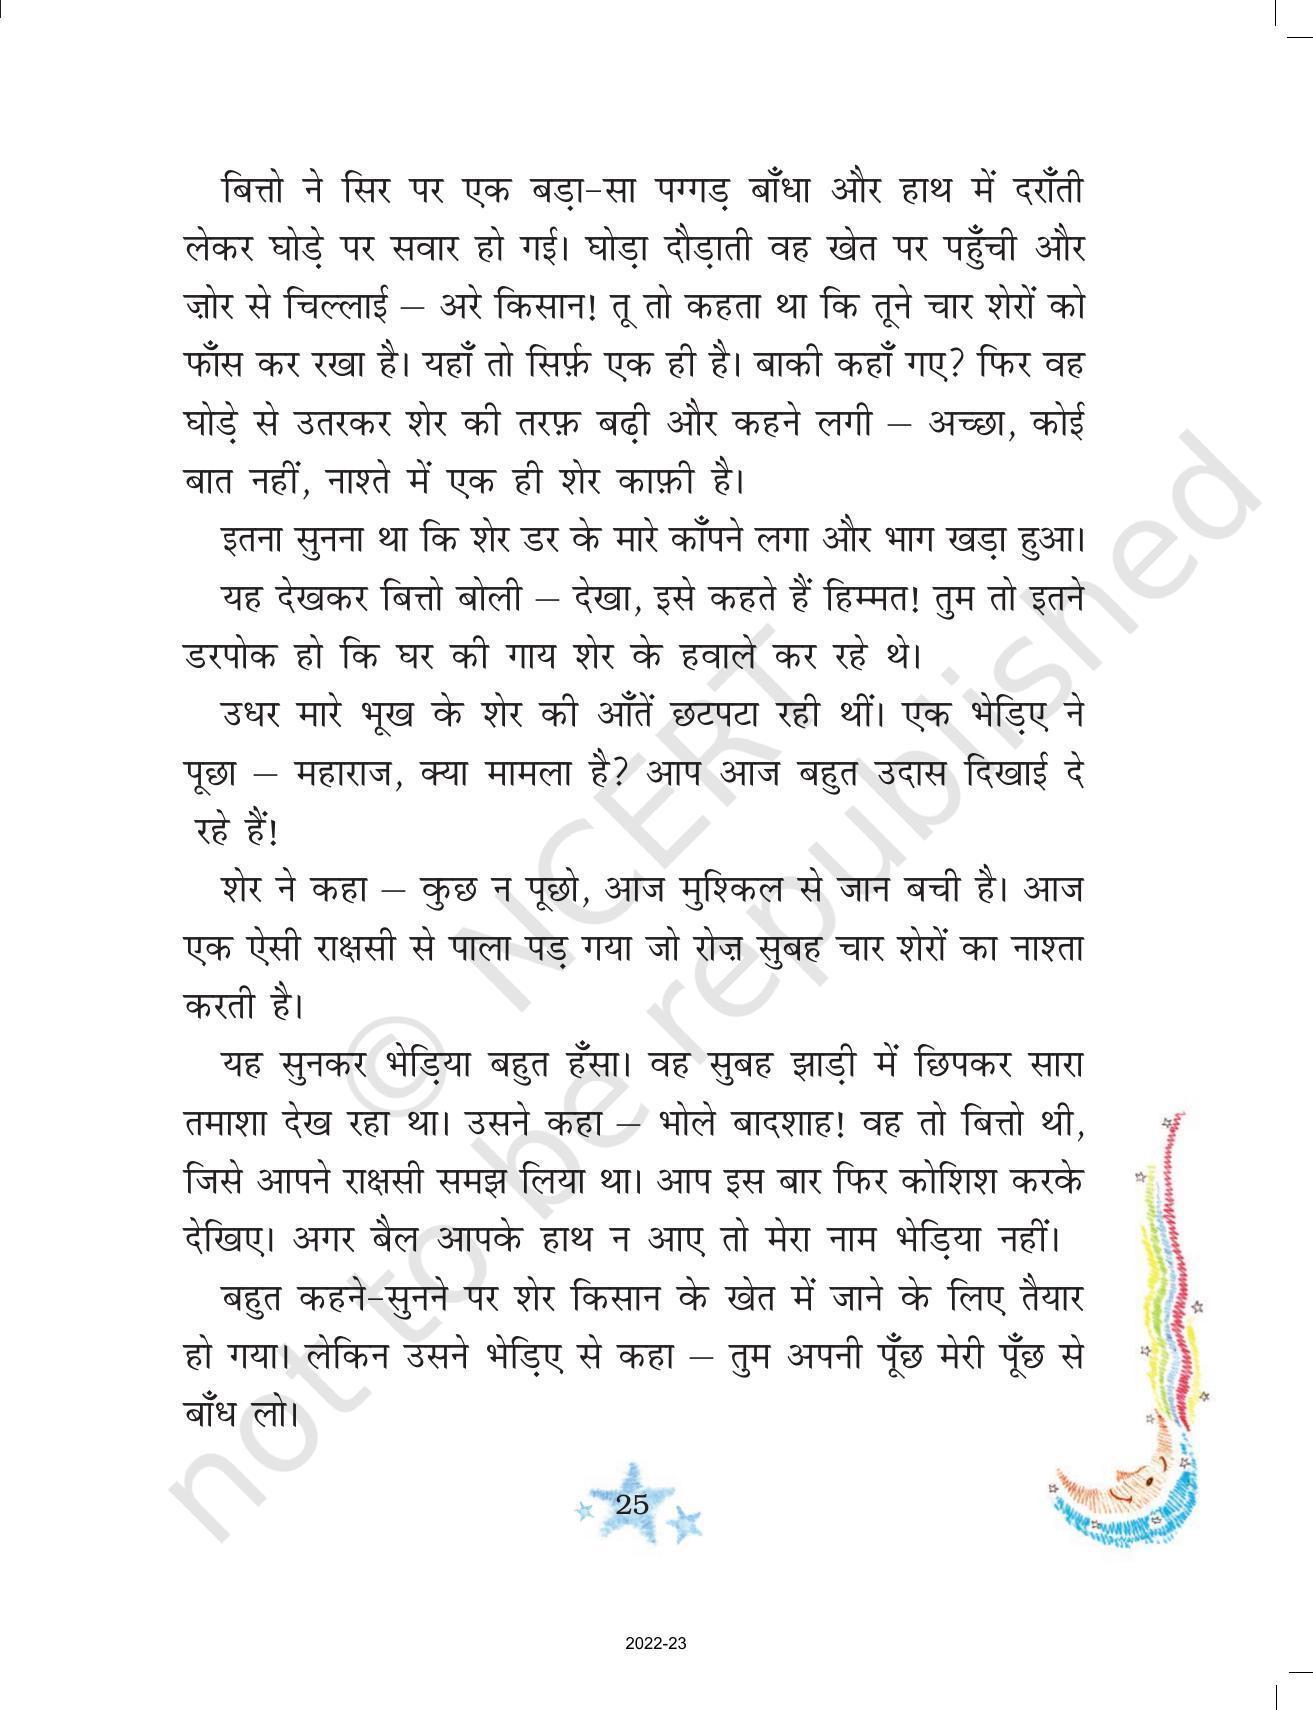 बित्तो ने सिर पर एक बड़ा-सा पग्गड़ बाँधा और हाथ में दराँती
लेकर घोड़े पर सवार हो गई। घोड़ा दौड़ाती वह खेत पर पहुँची और
ज़ोर से चिल्लाई – अरे किसान! तू तो कहता था कि तूने चार शेरों को
फाँस कर रखा है। यहाँ तो सिर्फ़ एक ही है। बाकी कहाँ गए? फिर वह
घोड़े से उतरकर शेर की तरफ़ बढ़ी और कहने लगी – अच्छा, कोई
बात नहीं, नाश्ते में एक ही शेर काफ़ी है।
इतना सुनना था कि शेर डर के मारे काँपने लगा और भाग खड़ा हुआ।
यह देखकर बित्तो बोली – देखा, इसे कहते हैं हिम्मत! तुम तो इतने
डरपोक हो कि घर की गाय शेर के हवाले कर रहे थे।
उधर मारे भूख के शेर की आँतें छटपटा रही थीं। एक भेड़िए ने
पूछा – महाराज, क्या मामला है? आप आज बहुत उदास दिखाई दे
रहे हैं!
शेर ने कहा – कुछ न पूछो, आज मुश्किल से जान बची है। आज
एक ऐसी राक्षसी से पाला पड़ गया जो रोज़ सुबह चार शेरों का नाश्ता
करती है।
यह सुनकर भेड़िया बहुत हँसा। वह सुबह झाड़ी में छिपकर सारा
तमाशा देख रहा था। उसने कहा – भोले बादशाह! वह तो बित्तो थी,
जिसे आपने राक्षसी समझ लिया था। आप इस बार फिर कोशिश करके
देखिए। अगर बैल आपके हाथ न आए तो मेरा नाम भेड़िया नहीं।
बहुत कहने-सुनने पर शेर किसान के खेत में जाने के लिए तैयार
हो गया। लेकिन उसने भेड़िए से कहा – तुम अपनी पूँछ मेरी पूँछ से
बाँध लो।
© NCERT
not to be republished
25
2022-23